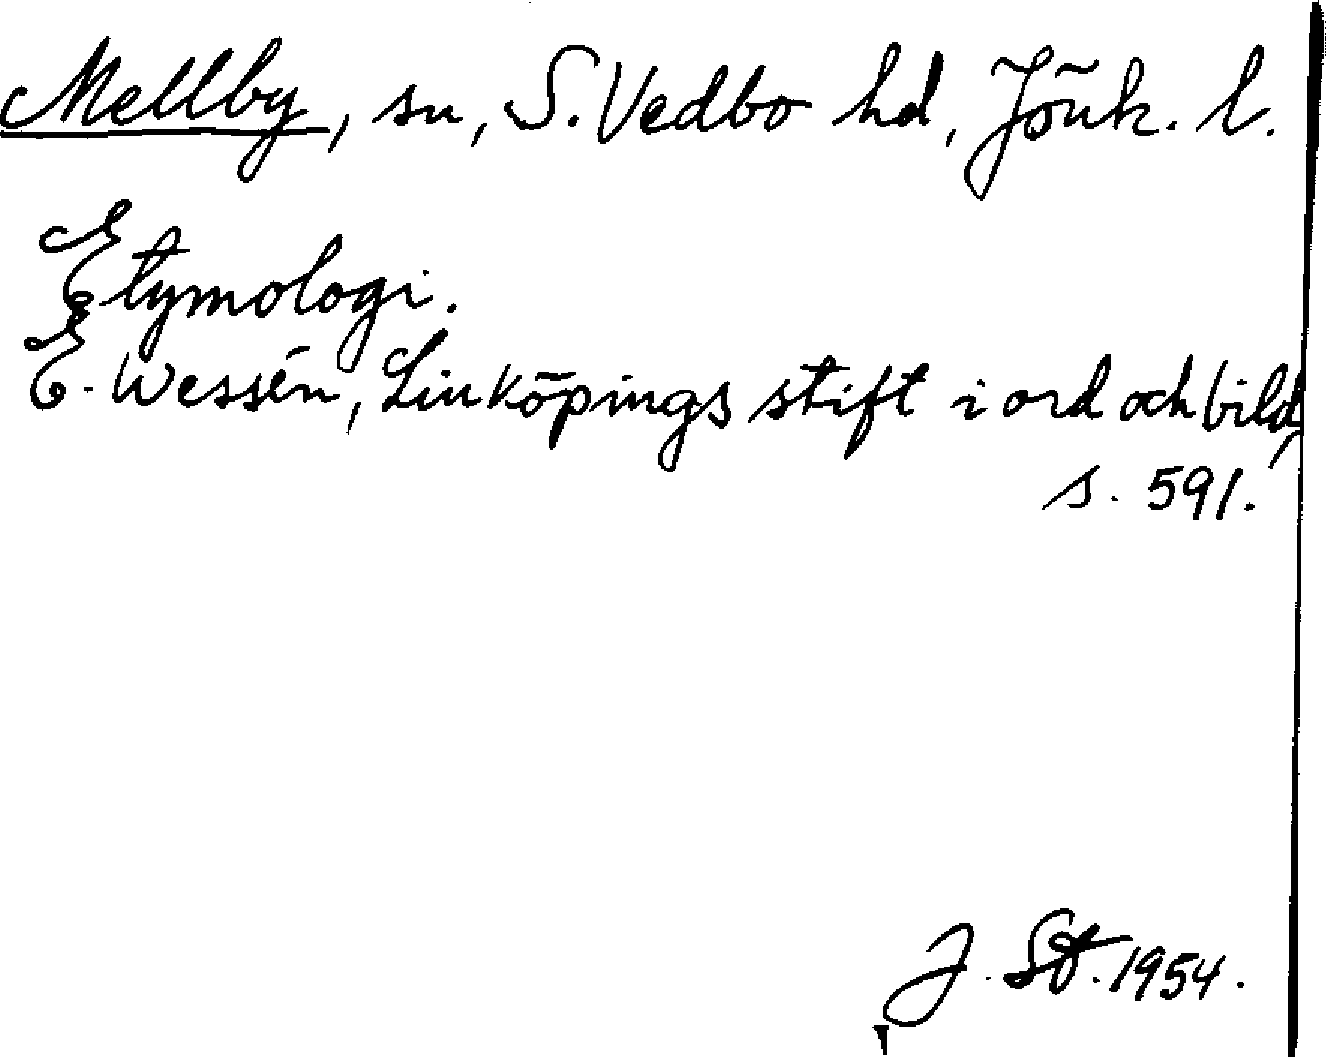 Mellby, sn, S. Vedbo hd, Jönk. l.
Etymologi.
E. Wessén, Linköpings stift i ord och bild,
s. 591.
J. St. 1954.